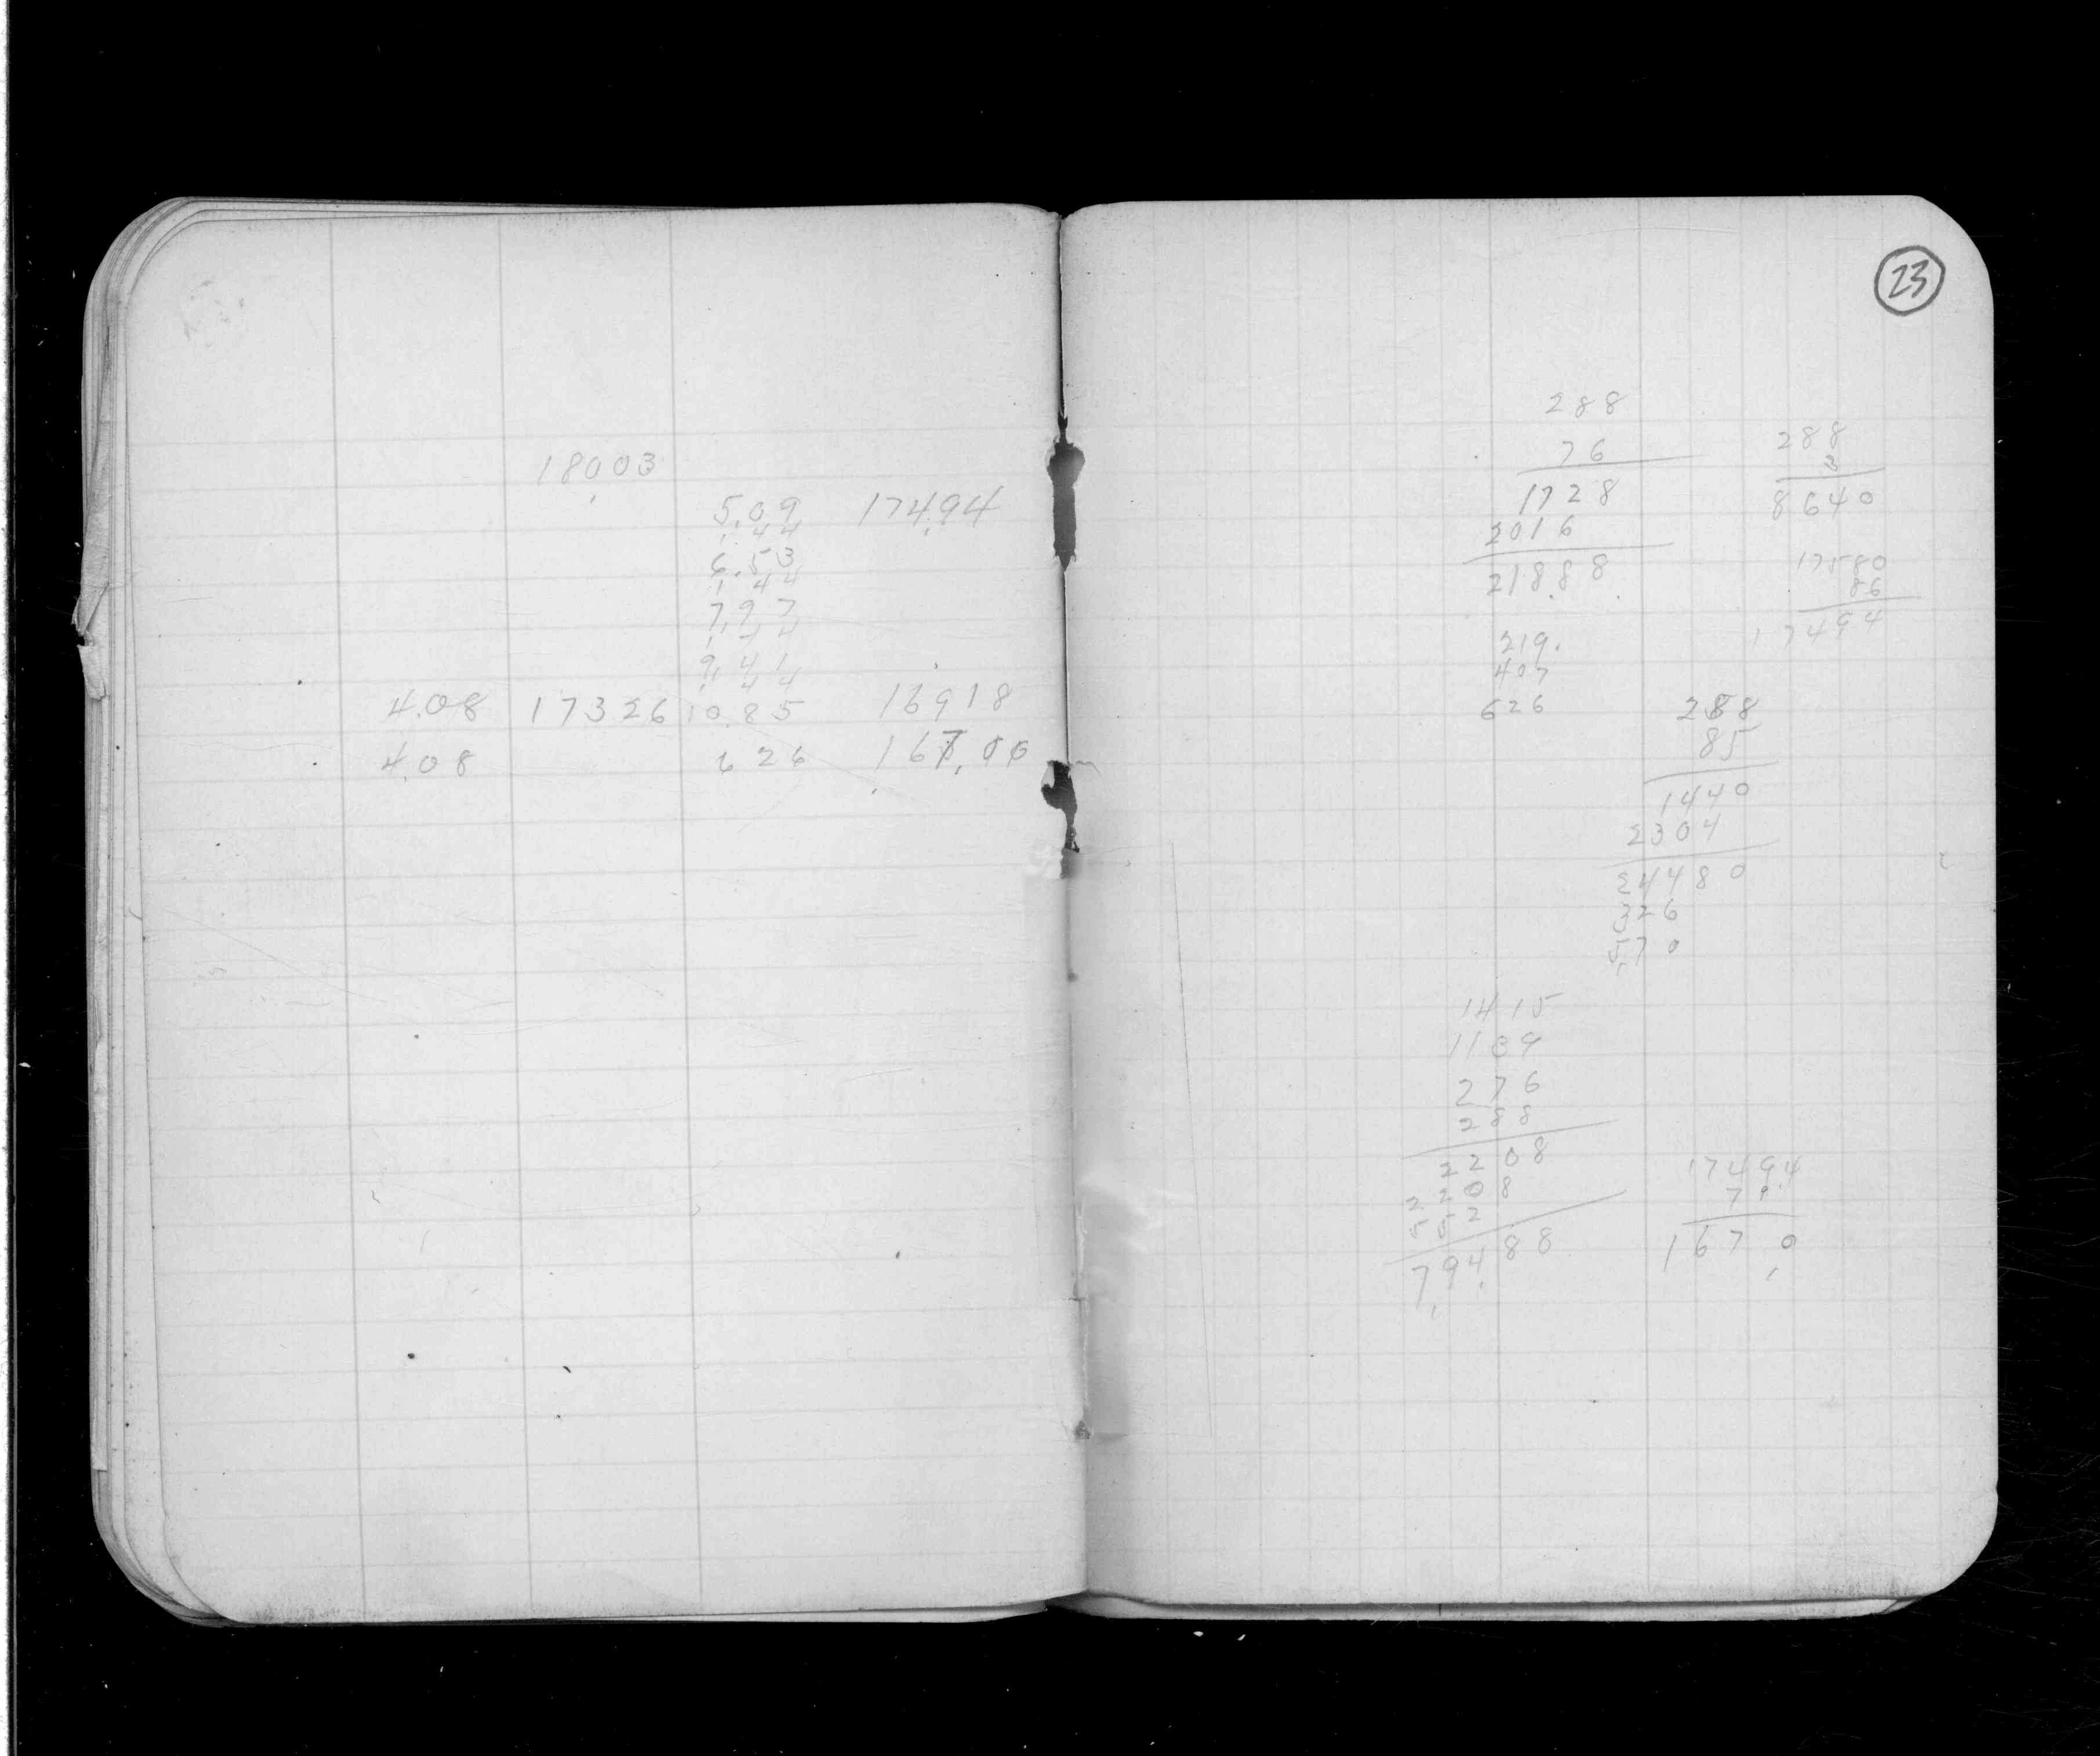 18003
5.09 17494
1 44
6.53
1 44
7 97
1 44
9 41
1 44
4.08 17326 10.85 16918
4.08 626 167.00
23
288
76
1728
2016
21888
219.
407
626
288
3
8640
17580
86
17494
288
85
1440
2304
24480
326
570
1415
1139
276
288
2208
2208
552
79488
17494
79.
1670